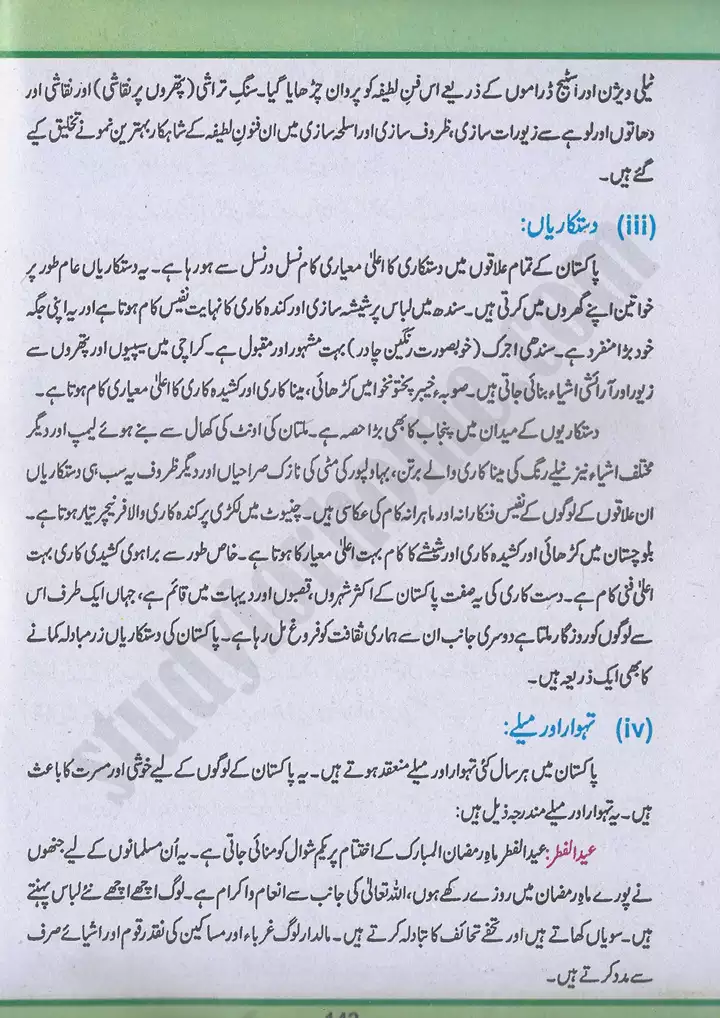 ٹیلی ویژن اور اسٹیج ڈراموں کے ذریعے اس فنِ لطیفہ کو پروان چڑھایا گیا۔ سنگِ تراشی (پتھروں پر نقاشی) اور نقاشی اور
دھاتوں اور لوہے سے زیورات سازی، ظروف سازی اور اسلحہ سازی میں ان فنونِ لطیفہ کے شاہکار بہترین نمونے تخلیق کیے
گئے ہیں۔
(iii) دستکاریاں:
پاکستان کے تمام علاقوں میں دستکاری کا اعلیٰ معیاری کام نسل در نسل سے ہو رہا ہے۔ یہ دستکاریاں عام طور پر
خواتین اپنے گھروں میں کرتی ہیں۔ سندھ میں لباس پر شیشہ سازی اور کندہ کاری کا نہایت نفیس کام ہوتا ہے اور یہ اپنی جگہ
خود بڑا منفرد ہے۔ سندھی اجرک (خوبصورت رنگین چادر) بہت مشہور اور مقبول ہے۔ کراچی میں سیپیوں اور پتھروں سے
زیور اور آرائشی اشیاء بنائی جاتی ہیں۔ صوبہء خیبر پختونخوا میں کڑھائی، مینا کاری اور کشیدہ کاری کا اعلیٰ معیاری کام ہوتا ہے۔
دستکاریوں کے میدان میں پنجاب کا بھی بڑا حصہ ہے۔ ملتان کی اونٹ کی کھال سے بنے ہوئے لیمپ اور دیگر
مختلف اشیاء نیز نیلے رنگ کی مینا کاری والے برتن، بہاولپور کی مٹی کی نازک صراحیاں اور دیگر ظروف یہ سب ہی دستکاریاں
ان علاقوں کے لوگوں کے نفیس فنکارانہ اور ماہرانہ کام کی عکاسی ہیں۔ چنیوٹ میں لکڑی پر کندہ کاری والا فرنیچر تیار ہوتا ہے۔
بلوچستان میں کڑھائی اور کشیدہ کاری اور شیشے کا کام بہت اعلیٰ معیار کا ہوتا ہے۔ خاص طور سے براہوی کشیدی کاری بہت
اعلیٰ فنی کام ہے۔ دست کاری کی یہ صفت پاکستان کے اکثر شہروں، قصبوں اور دیہات میں قائم ہے، جہاں ایک طرف اس
سے لوگوں کو روزگار ملتا ہے دوسری جانب ان سے ہماری ثقافت کو فروغ مل رہا ہے۔ پاکستان کی دستکاریاں زرِمبادلہ کمانے
کا بھی ایک ذریعہ ہیں۔
(iv) تہوار اور میلے:
پاکستان میں ہر سال کئی تہوار اور میلے منعقد ہوتے ہیں۔ یہ پاکستان کے لوگوں کے لیے خوشی اور مسرت کا باعث
ہیں۔ یہ تہوار اور میلے مندرجہ ذیل ہیں:
عیدالفطر: عیدالفطر ماہِ رمضان المبارک کے اختتام پر یکم شوال کو منائی جاتی ہے۔ یہ اُن مسلمانوں کے لیے جنھوں
نے پورے ماہِ رمضان میں روزے رکھے ہوں، اللہ تعالیٰ کی جانب سے انعام و اکرام ہے۔ لوگ اچھے اچھے نئے لباس پہنتے
ہیں۔ سویاں کھاتے ہیں اور تحفے تحائف کا تبادلہ کرتے ہیں۔ مالدار لوگ غرباء اور مساکین کی نقد رقوم اور اشیائے صرف
سے مدد کرتے ہیں۔
studynowhome.com